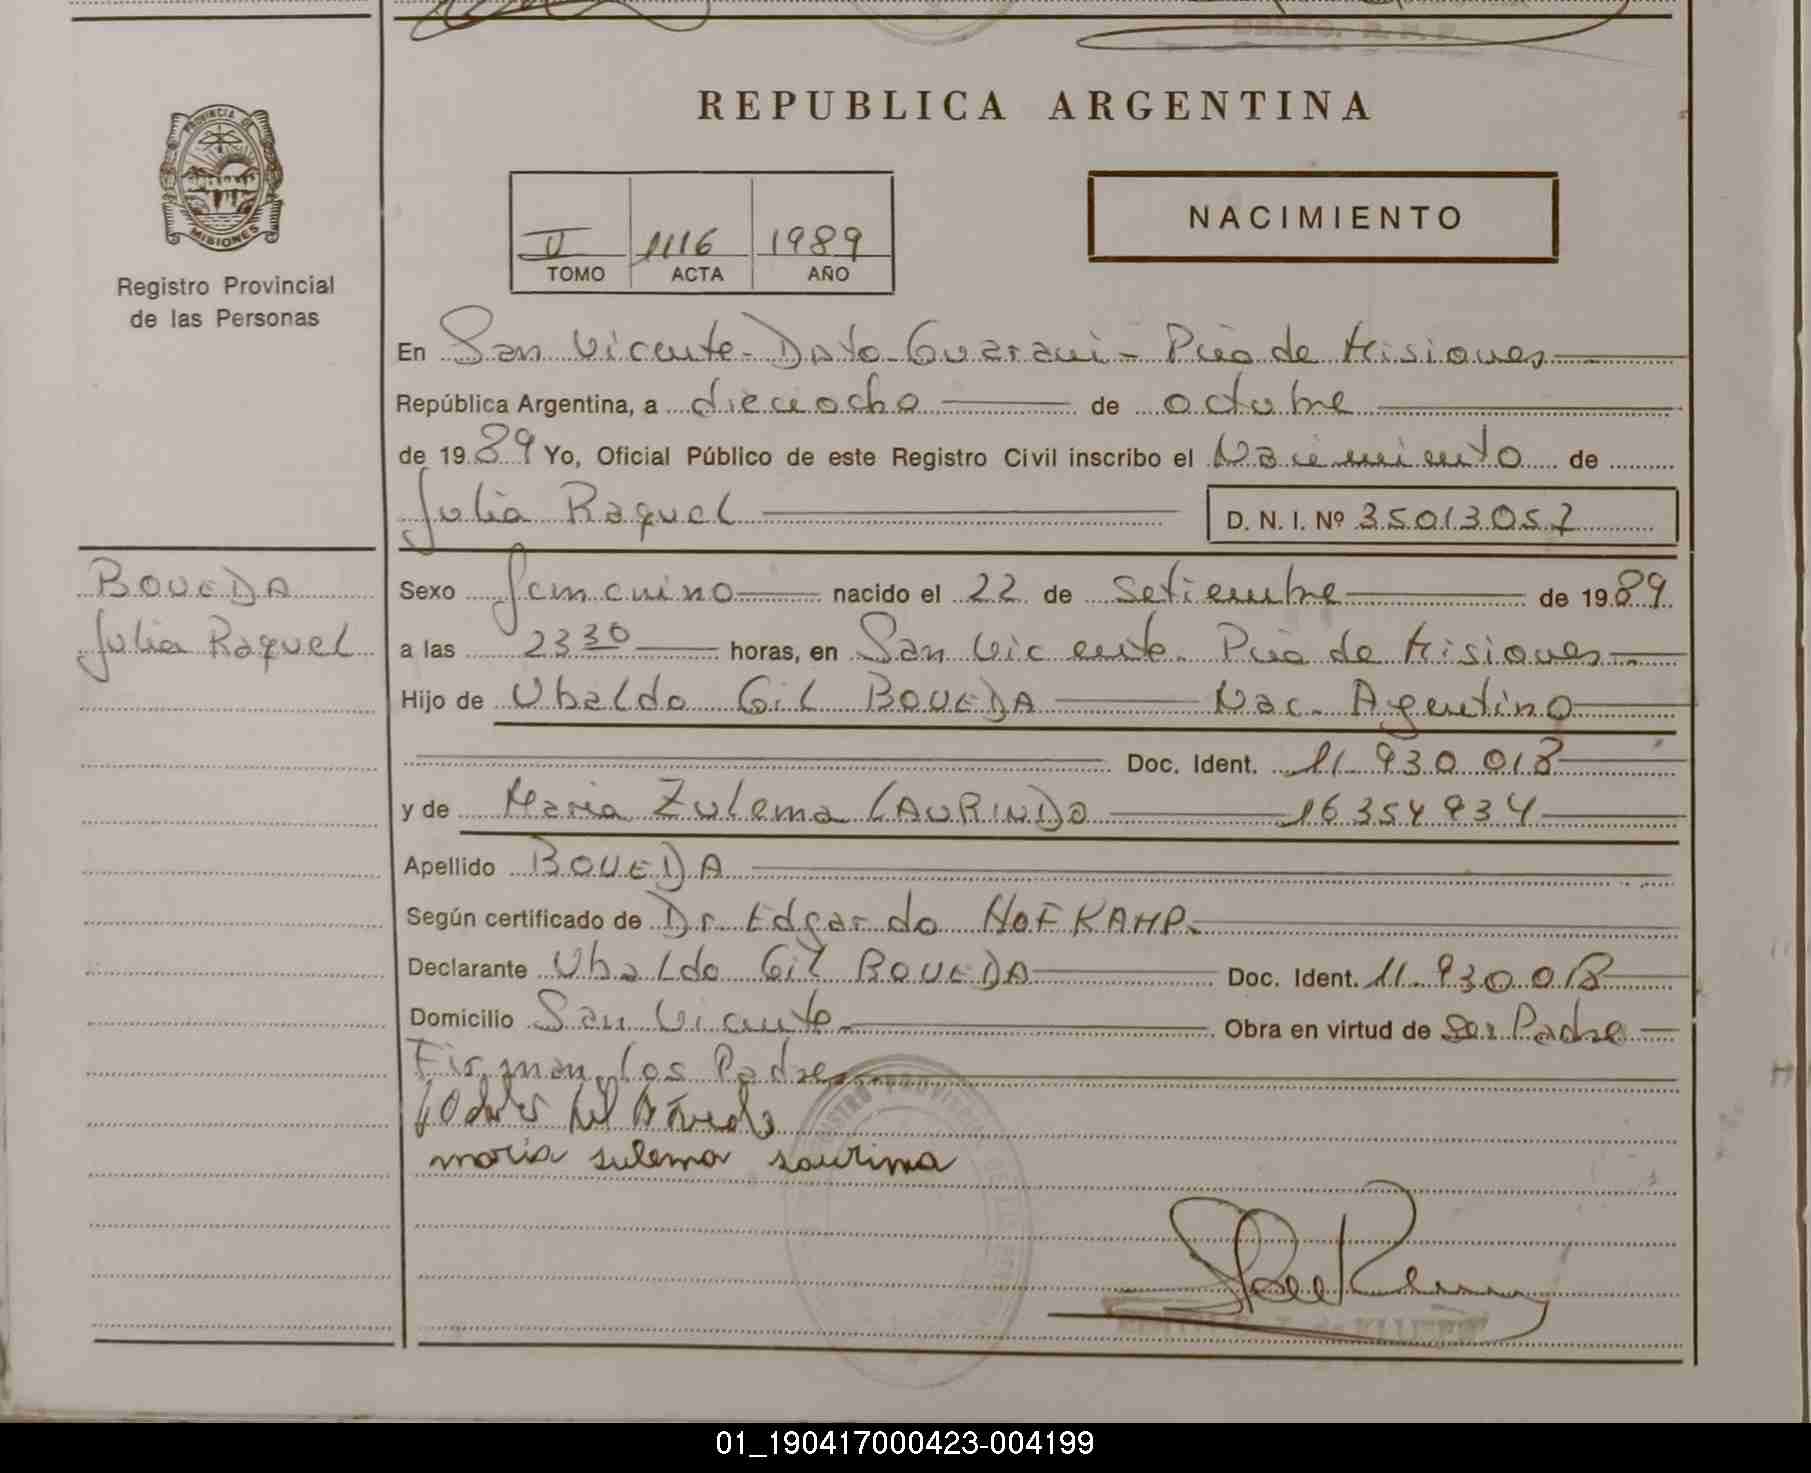 DELEG. R. P. P.
REPUBLICA ARGENTINA
PROVINCIA DE
MISIONES
Registro Provincial
de las Personas
II 1116 1989
TOMO ACTA AÑO
NACIMIENTO
En San Vicente - Dpto Guarani - Pcia de Misiones
República Argentina, a dieciocho de octubre
de 1989 Yo, Oficial Público de este Registro Civil inscribo el Nacimiento de
Julia Raquel
D. N. I. Nº 35013057
BOVEDA
Julia Raquel
Sexo femenino nacido el 22 de Setiembre de 1989
a las 23 30 horas, en San Vicente. Pcia de Misiones
Hijo de Ubaldo Gil BOVEDA Nac. Agentino
Doc. Ident. 11.930.018
y de Maria Zulema LAURINDO 16354934
Apellido BOVEDA
Según certificado de Dr. Edgardo HOFKAMP.
Declarante Ubaldo Gil BOVEDA Doc. Ident. 11.930.018
Domicilio San Vicente Obra en virtud de Ser Padre
Firman los Padres
maria sulema
01_190417000423-004199